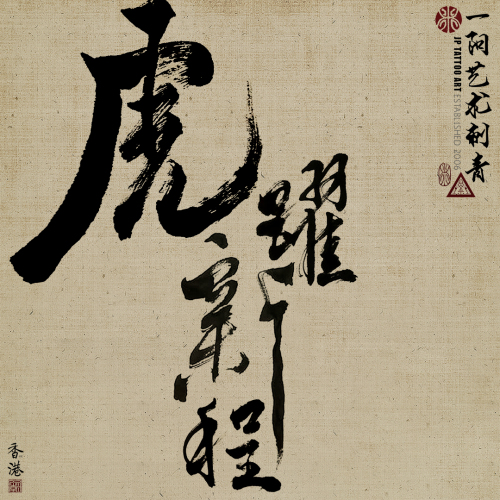 虎
躍
新
程
一阿艺术刺青
JP TATTOO ART ESTABLISHED 2006
香港